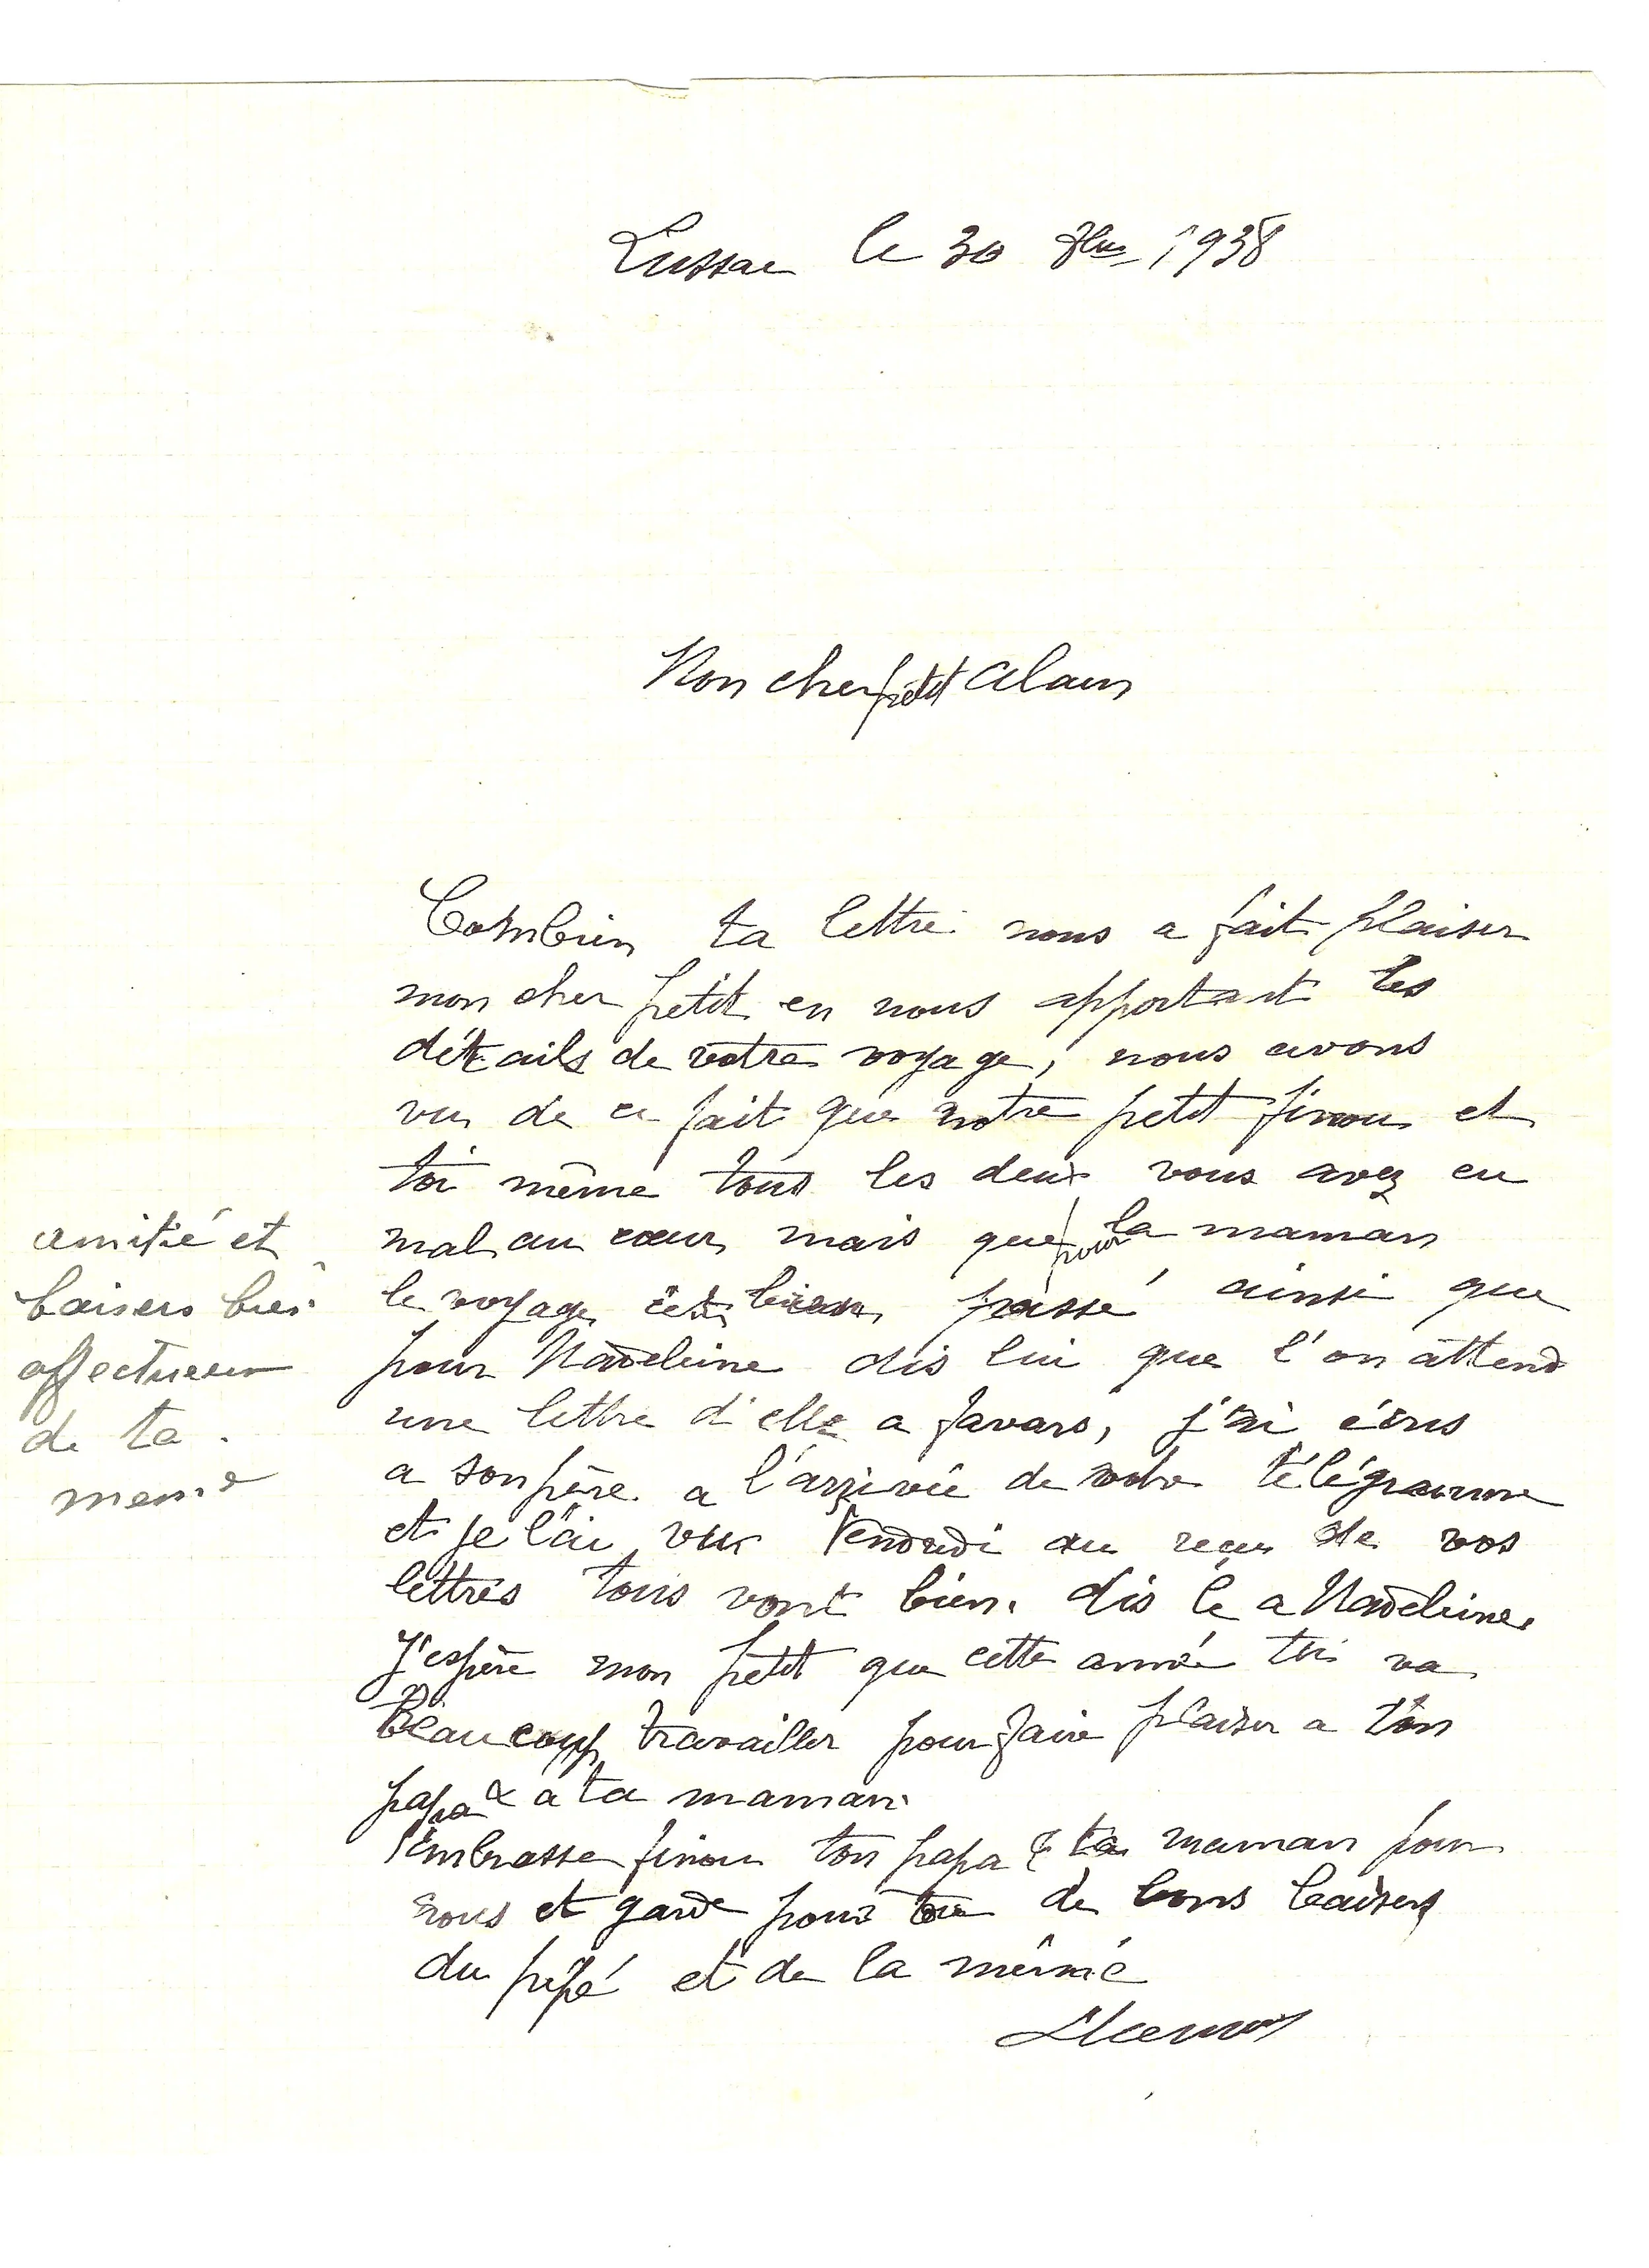 Lussac le 30 7bre 1938
Mon cher petit Alain
Combien ta lettre nous a fait plaisir
mon cher petit en nous apportant les
détails de votre voyage, nous avons
vu de ce fait que notre petit finou et
toi même tous les deux vous avez eu
mal au cœur, mais que pour la maman
le voyage est bien passé ainsi que
pour Madeleine dis lui que l'on attend
une lettre d'elle a Javars, j'ai écris
a son père a l'arrivée de votre télégramme
et je l'ai vu Vendredi au reçu de vos
lettres tous vont bien. dis le a Madeleine.
J'espère mon petit que cette année tu va
Beaucoup travailler pour faire plaisir a ton
papa & a ta maman.
Embrasse finou ton papa & ta maman pour
nous et garde pour toi de bons baisers
du pépé et de la mémé
amitié et
baisers bien
affectueux
de ta
mémé